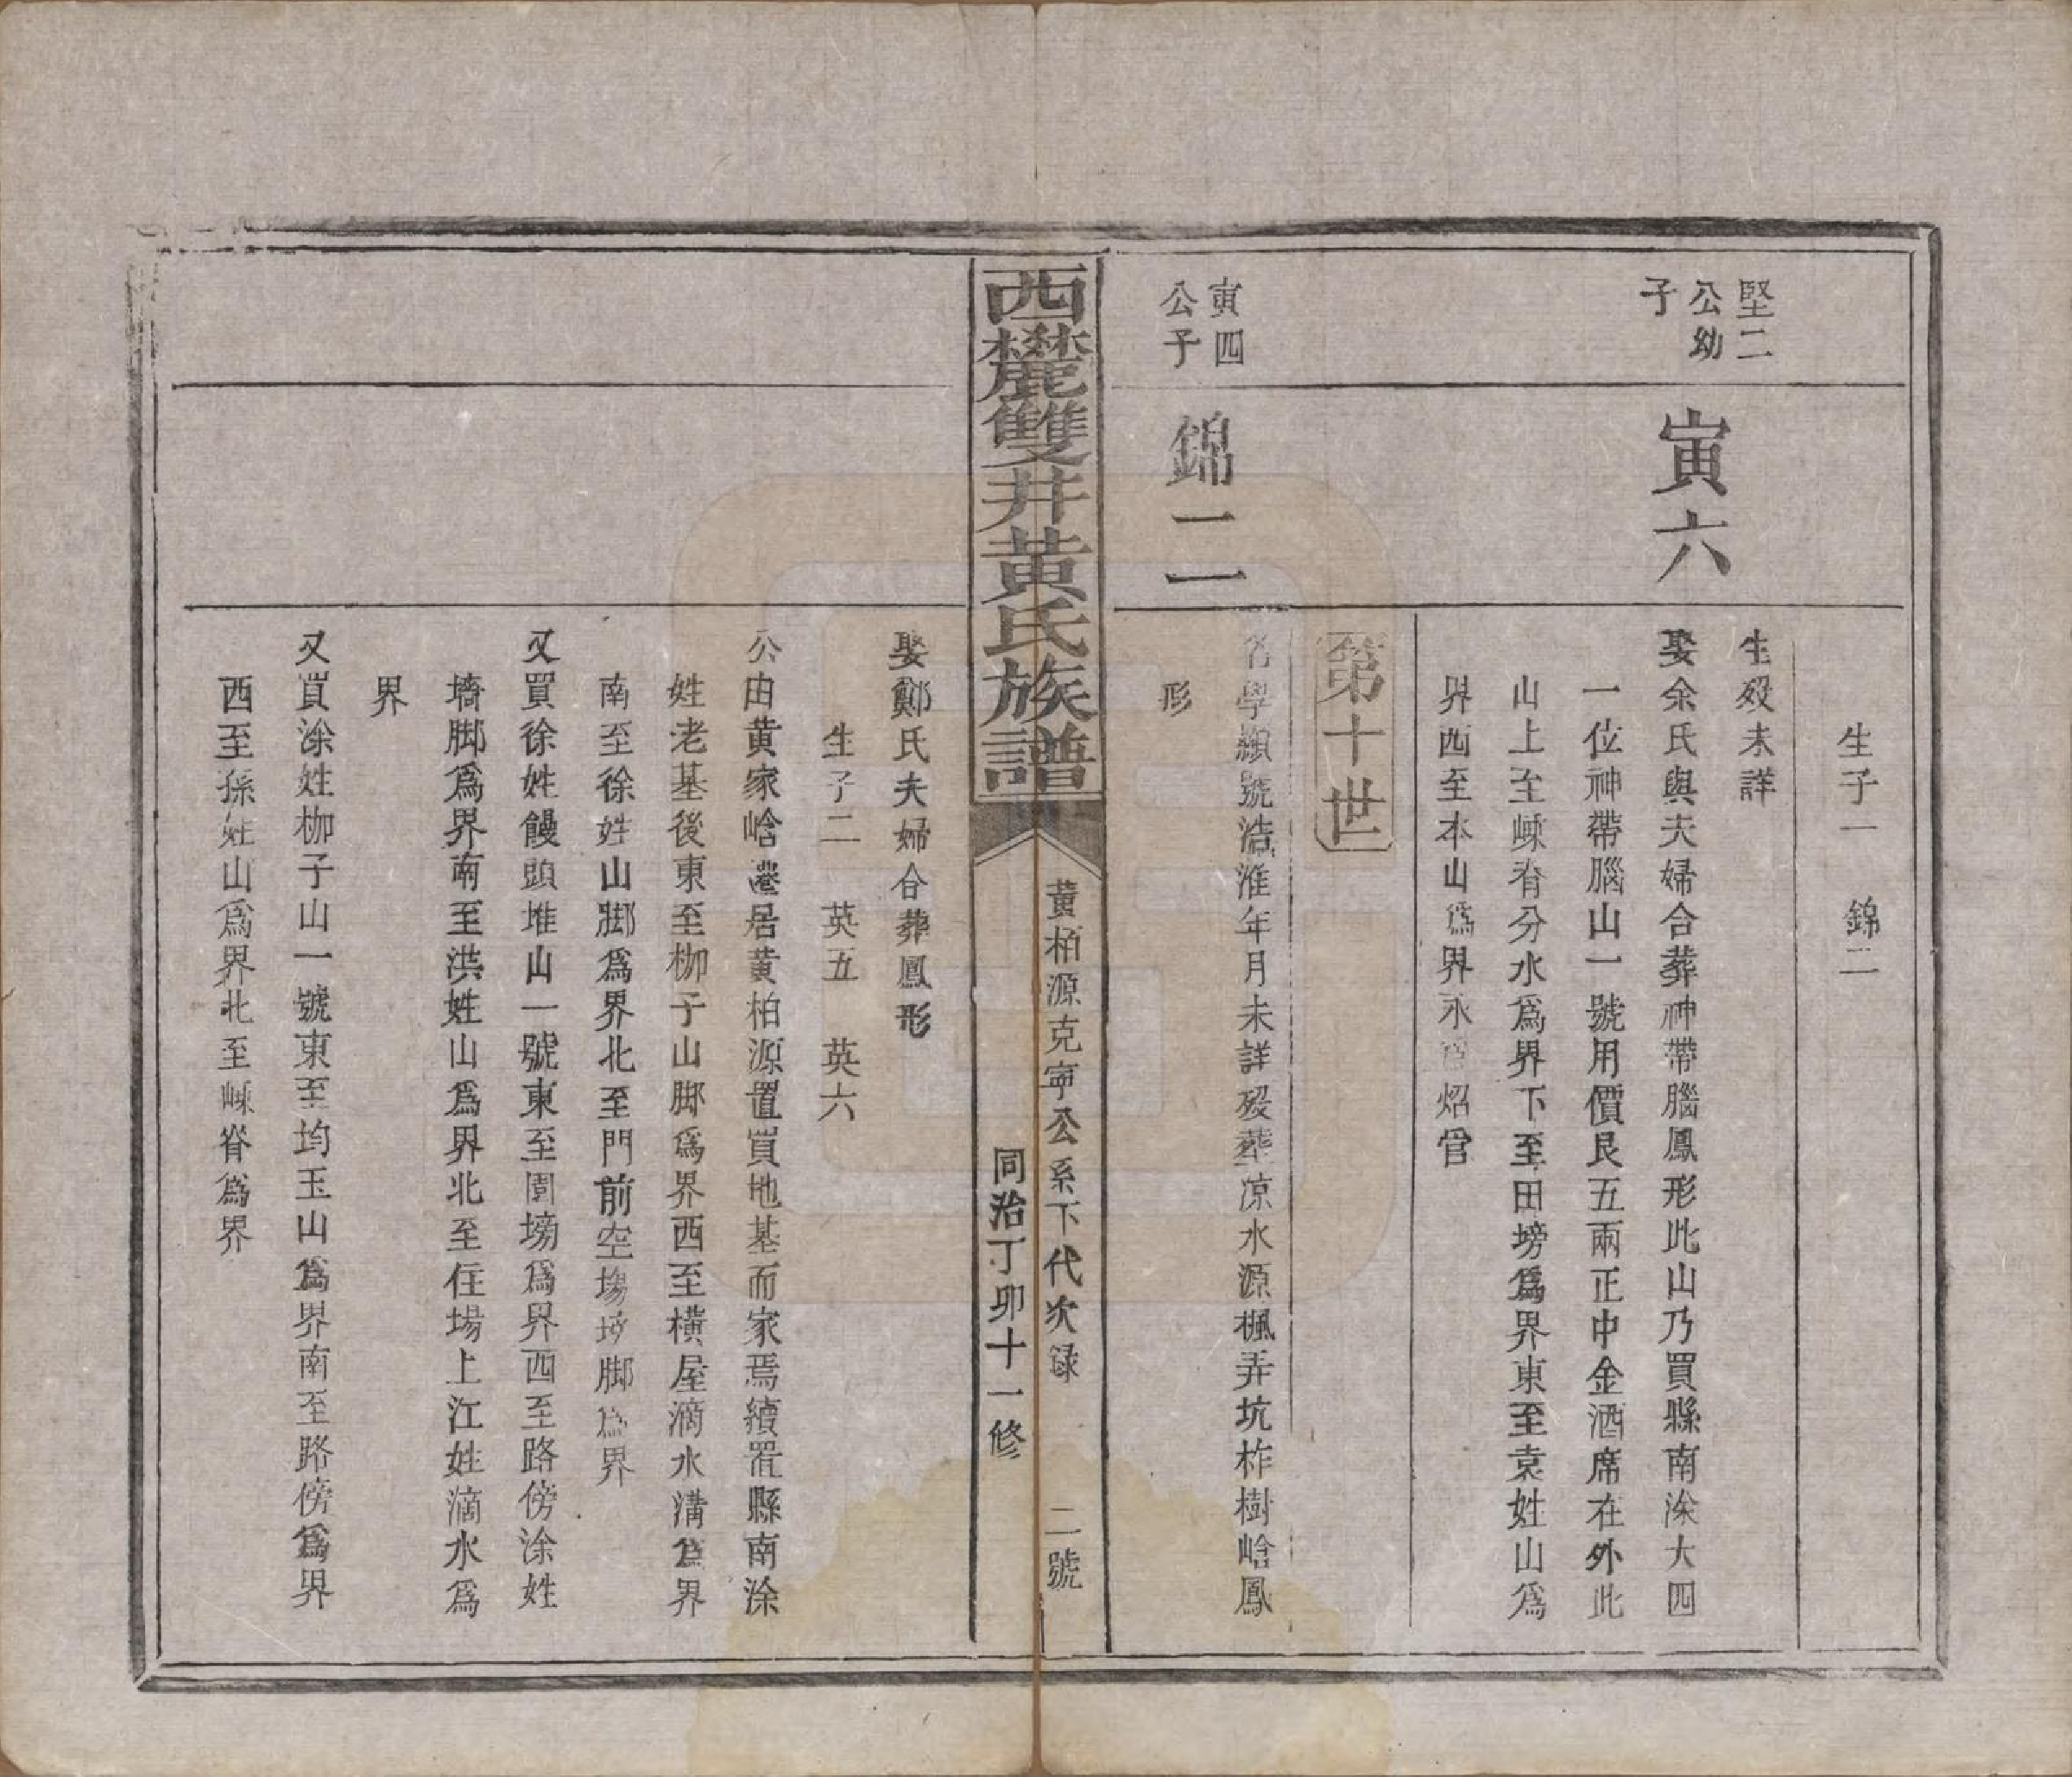 生子一　錦二
堅二
公幼
子
寅六
生歿未詳
娶余氏與夫婦合葬神帶腦鳳形此山乃買縣南涂大四
一位神帶腦山一號用價艮五兩正中金酒席在外此
山上至嵊脊分水為界下至田塝為界東至袁姓山為
界西至本山為界永炤管
第十世
寅四
公子
錦二
名學顯號浩淮年月未詳歿葬凉水源楓弄坑柞樹峆鳳
形
西麓雙井黃氏族譜
黃栢源克寧公系下代次録　二號
同治丁卯十一修
娶鄭氏夫婦合葬鳳形
生子二　英五　英六
公由黄家峆遷居黄栢源置買地基而家焉續置縣南涂
姓老基後東至枷子山脚為界西至橫屋滴水溝為界
南至徐姓山脚為界北至門前空塲塝脚為界
又買徐姓饅頭堆山一號東至園塝為界西至路傍涂姓
墻脚為界南至洪姓山為界北至住場上江姓滴水為
界
又買涂姓枷子山一號東至均玉山為界南至路傍為界
西至孫姓山為界北至嵊脊為界